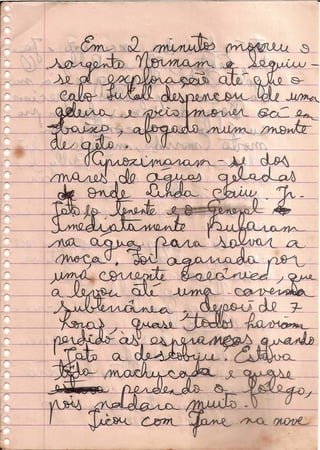 Em 2 minutos morreu o
sargento Normam e seguiu-
se a exploração até que o
cabo Lutell despencou de uma
geleira e pois morrer cá em
baixo, afogado num monte
de gelo.
Aproximaram-se dos
mares de aguas geladas
onde Linda caiu Jr.
Tato Jo, tenente e o general
imediatamente pularam
na agua para salvar a
moça. Foi agarrada por
uma corrente oceânica, que
a levou até uma caverna
subterrânea depois de 7
horas, quase todos haviam
perdido as esperanças quando
Tato a descobriu. Estava
toda machucada e quase
perdendo o folego,
pois nadara muito.
Ficou com Jane na nove